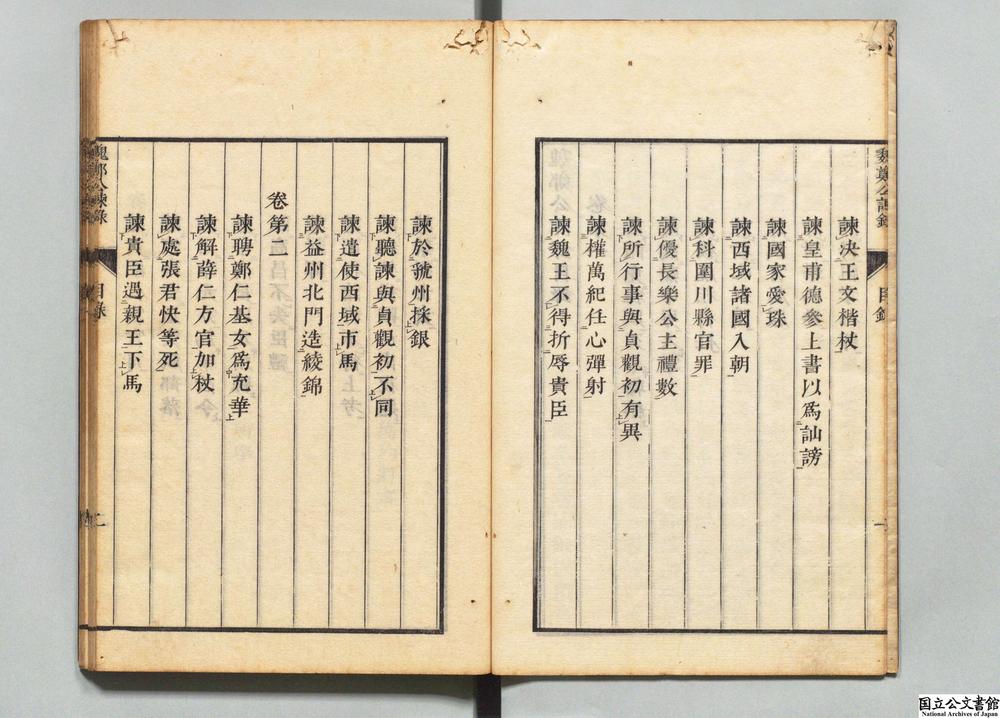 魏鄭公諫錄
目錄
一
諫决王文楷杖
諫皇甫德參上書以爲訕謗
諫國家愛珠
諫西域諸國入朝
諫科圍川縣官罪
諫優長樂公主禮數
諫所行事與貞觀初有異
諫權萬紀任心彈射
諫魏王不得折辱貴臣
諫於虢州採銀
諫聽諫與貞觀初不同
諫遣使西域市馬
諫益州北門造綾錦
卷第二
諫聘鄭仁基女爲充華
諫解薛仁方官加杖
諫處張君快等死
諫貴臣遇親王下馬
魏鄭公諫錄
目錄
二
国立公文書館
National Archives of Japan